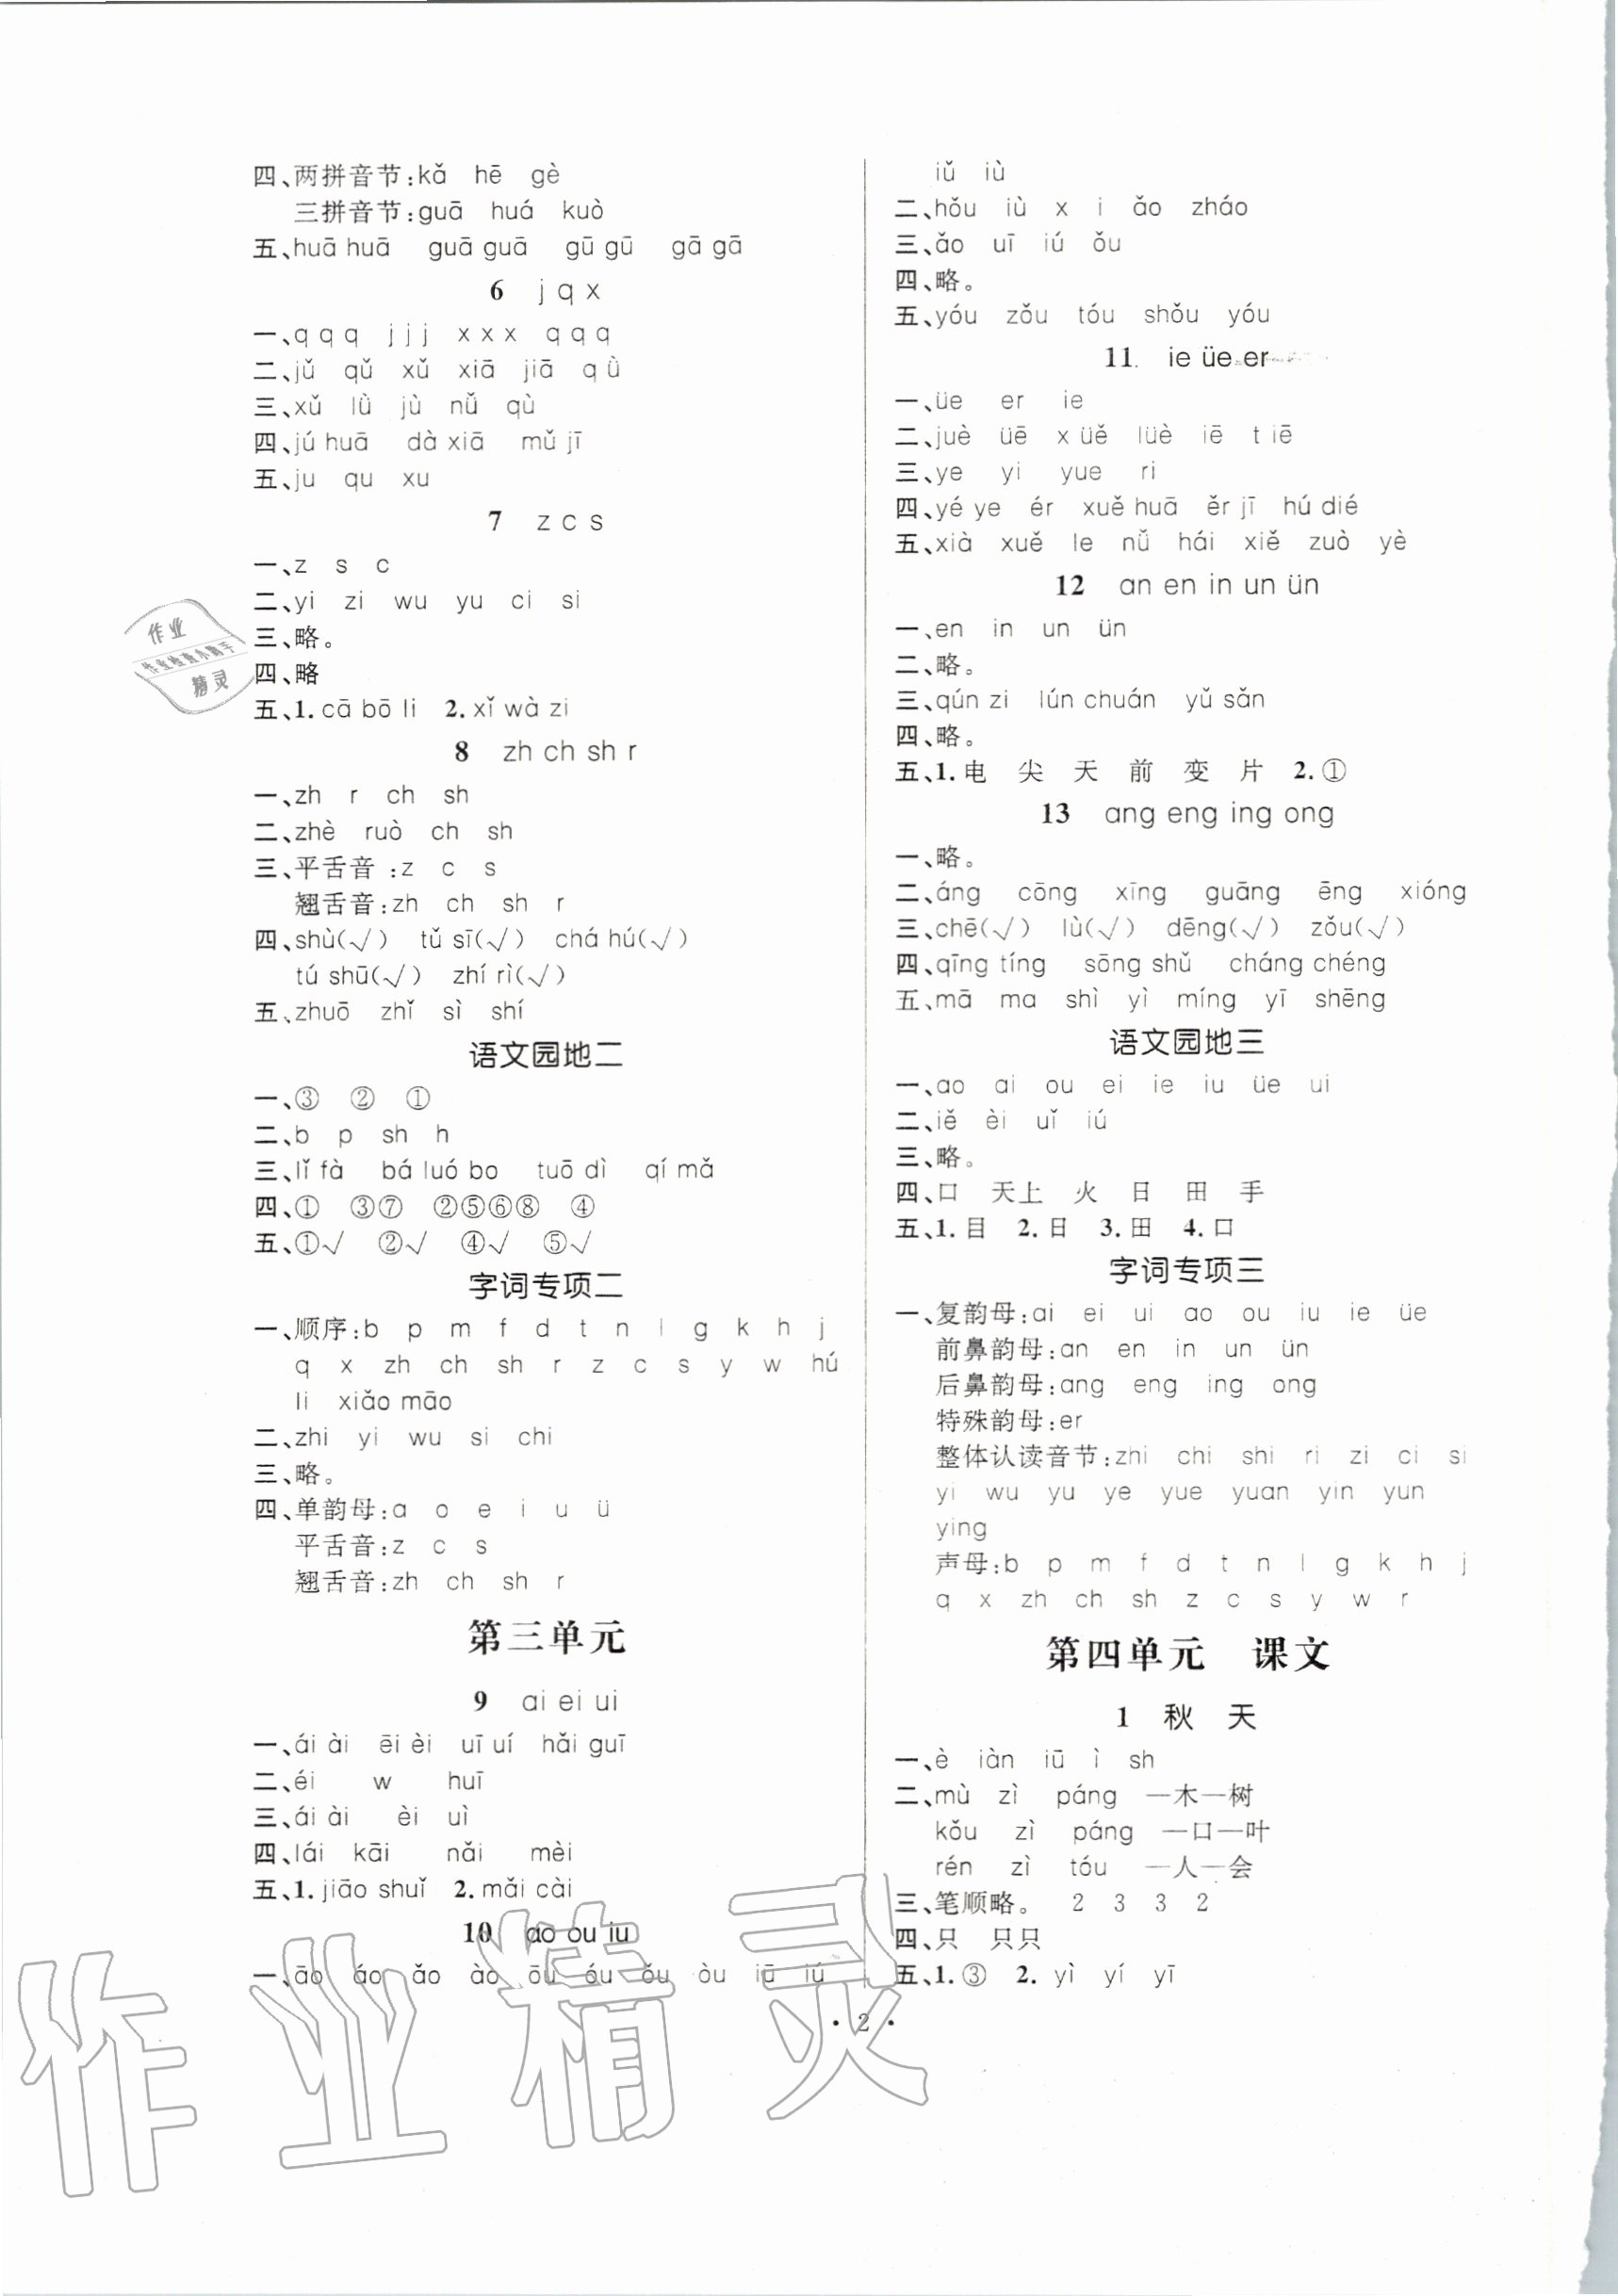 四、两拼音节:kǎ hē gè
三拼音节:guā huá kuò
五、huā huā guā guā gū gū gā gā
6 j q x
一、q q q j j j x x x q q q
二、jǔ qǔ xǔ xiā jiā q ǜ
三、xǔ lǜ jù nǚ qù
四、jú huā dà xiā mǔ jī
五、ju qu xu
7 z c s
一、z s c
二、yi zi wu yu ci si
三、略。
四、略
五、1. cā bō li 2. xǐ wà zi
8 zh ch sh r
一、zh r ch sh
二、zhè ruò ch sh
三、平舌音:z c s
翘舌音:zh ch sh r
四、shù(√) tǔ sī(√) chá hú(√)
tú shū(√) zhí rì(√)
五、zhuō zhǐ sì shí
语文园地二
一、③ ② ①
二、b p sh h
三、lǐ fà bá luó bo tuō dì qí mǎ
四、① ③⑦ ②⑤⑥⑧ ④
五、①√ ②√ ④√ ⑤√
字词专项二
一、顺序:b p m f d t n l g k h j
q x zh ch sh r z c s y w hú
li xiǎo māo
二、zhi yi wu si chi
三、略。
四、单韵母:a o e i u ü
平舌音:z c s
翘舌音:zh ch sh r
第三单元
9 ai ei ui
一、ái ài ēi èi uī uí hǎi guī
二、éi w huī
三、ái ài èi uì
四、lái kāi nǎi mèi
五、1. jiāo shuǐ 2. mǎi cài
10 ao ou iu
一、āo áo ǎo ào ōu óu ǒu òu iū iú
iǔ iù
二、hǒu iù x i ǎo zháo
三、ǎo uī iú ǒu
四、略。
五、yóu zǒu tóu shǒu yóu
11. ie üe er
一、üe er ie
二、juè üē x üě lüè iē t iē
三、ye yi yue ri
四、yé ye ér xuě huā ěr jī hú dié
五、xià xuě le nǚ hái xiě zuò yè
12 an en in un ün
一、en in un ün
二、略。
三、qún zi lún chuán yǔ sǎn
四、略。
五、1. 电 尖 天 前 变 片 2. ①
13 ang eng ing ong
一、略。
二、áng cōng xīng guāng ēng xióng
三、chē(√) lù(√) dēng(√) zǒu(√)
四、qīng tíng sōng shǔ cháng chéng
五、mā ma shì yì míng yī shēng
语文园地三
一、ao ai ou ei ie iu üe ui
二、iě èi uǐ iú
三、略。
四、口 天上 火 日 田 手
五、1. 目 2. 日 3. 田 4. 口
字词专项三
一、复韵母:ai ei ui ao ou iu ie üe
前鼻韵母:an en in un ün
后鼻韵母:ang eng ing ong
特殊韵母:er
整体认读音节:zhi chi shi ri zi ci si
yi wu yu ye yue yuan yin yun
ying
声母:b p m f d t n l g k h j
q x zh ch sh z c s y w r
第四单元 课文
1 秋 天
一、è iàn iū ì sh
二、mù zì páng —木—树
kǒu zì páng —口—叶
rén zì tóu —人—会
三、笔顺略。 2 3 3 2
四、只 只只
五、1. ③ 2. yì yí yī
· 2 ·
作业
作业检查小助手
精灵
作业精灵